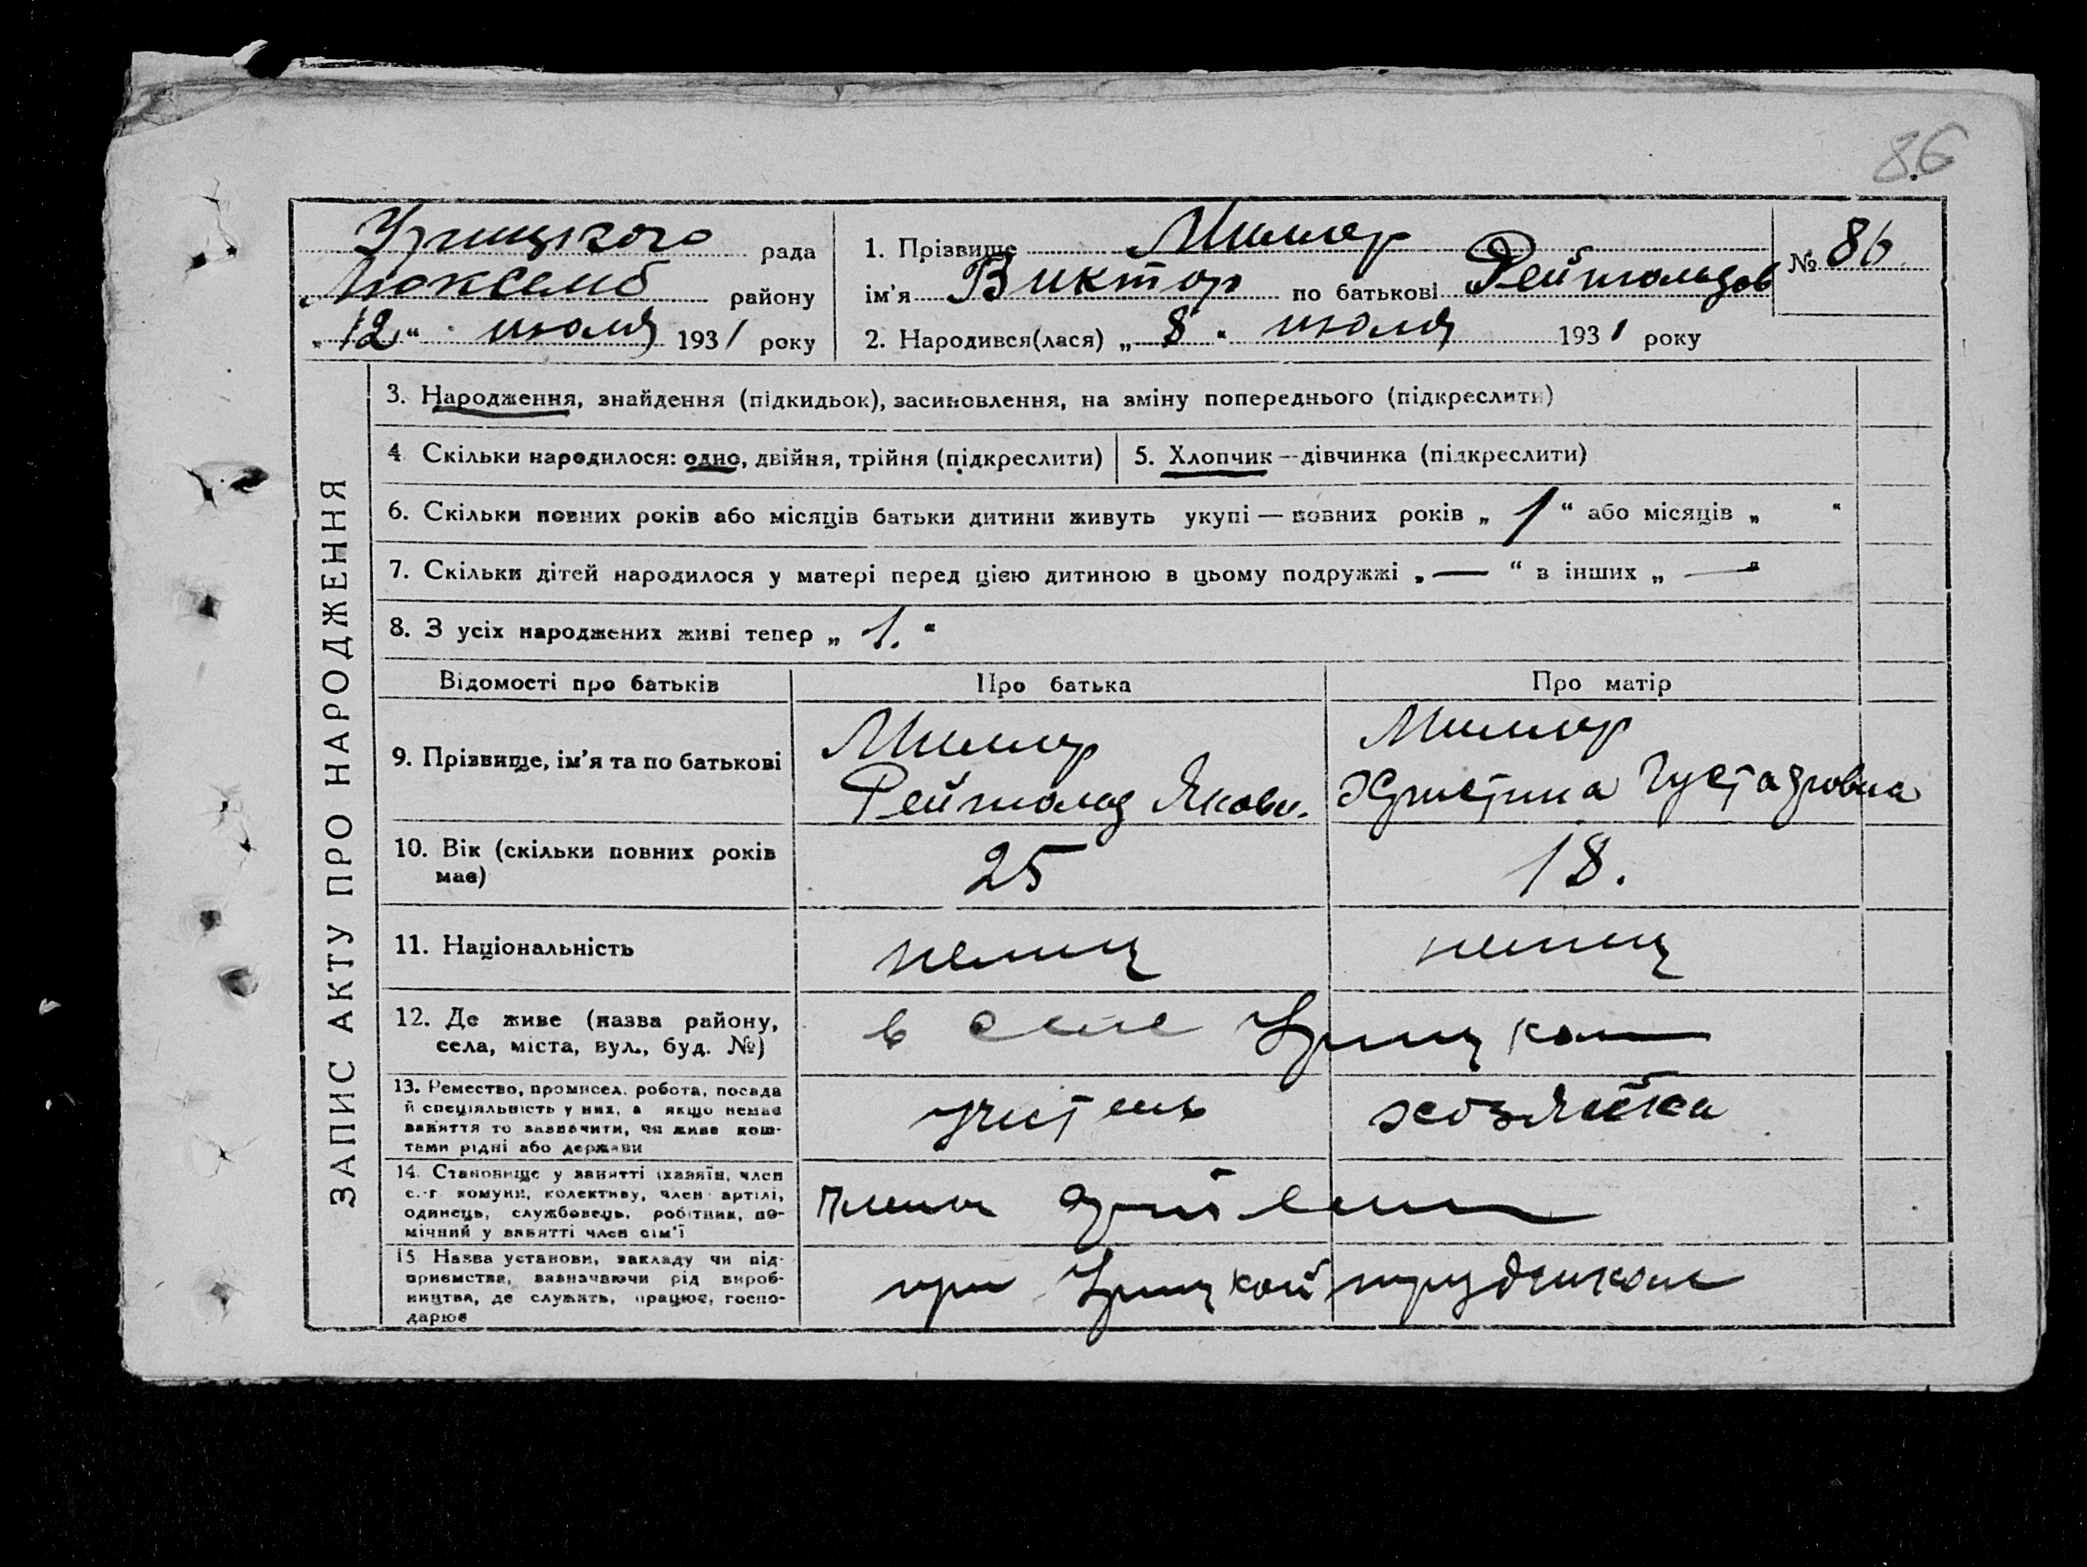 86
Урицкого рада
Люксемб району
"12" июля 1931 року
1. Прізвище Миллер
ім'я Виктор по батькові Рейнгольдов
2. Народився(лася) „8" июля 1931 року
№ 86
ЗАПИС АКТУ ПРО НАРОДЖЕННЯ
3. Народження, знайдення (підкидьок), засиновлення, на зміну попереднього (підкреслити)
4 Скільки народилося: одно, двійня, трійня (підкреслити) 5. Хлопчик—дівчинка (підкреслити)
6. Скільки повних років або місяців батьки дитини живуть укупі — повних років „ 1 " або місяців „ "
7. Скільки дітей народилося у матері перед цією дитиною в цьому подружжі „ — " в інших „ — "
8. З усіх народжених живі тепер „ 1. "
Відомості про батьків Про батька Про матір
9. Прізвище, ім'я та по батькові
Миллер
Рейнголд Яковл.
Миллер
Христина Густавовна
10. Вік (скільки повних років
має)
25 18.
11. Національність немец немец
12. Де живе (назва району,
села, міста, вул., буд. №)
в селе Урицком
13. Ремество, промисел, робота, посада
й спеціяльність у них, а якщо немає
заняття то зазначити, чи живе кош-
тами рідні або держави
учитель хозяйка
14. Становище у занятті (хазяїн, член
с.-г. комуни, колективу, член артілі,
одинець, службовець, робітник, по-
мічний у занятті член сім'ї
члены
15 Назва установи, закладу чи під-
приємства, зазначаючи рід вироб-
ництва, де служить, працює, госпо-
дарює
при Урицкой трудшколе